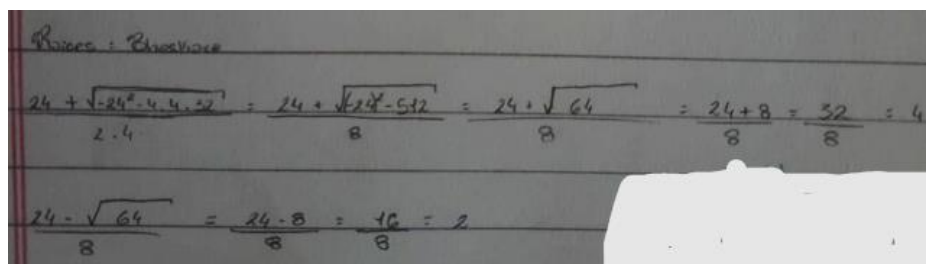 Raices : Bhaskara
24 + √-24² - 4 . 4 . 32 / 2 . 4 = 24 + √(-24)² - 512 / 8 = 24 + √64 / 8 = 24 + 8 / 8 = 32 / 8 = 4
24 - √64 / 8 = 24 - 8 / 8 = 16 / 8 = 2